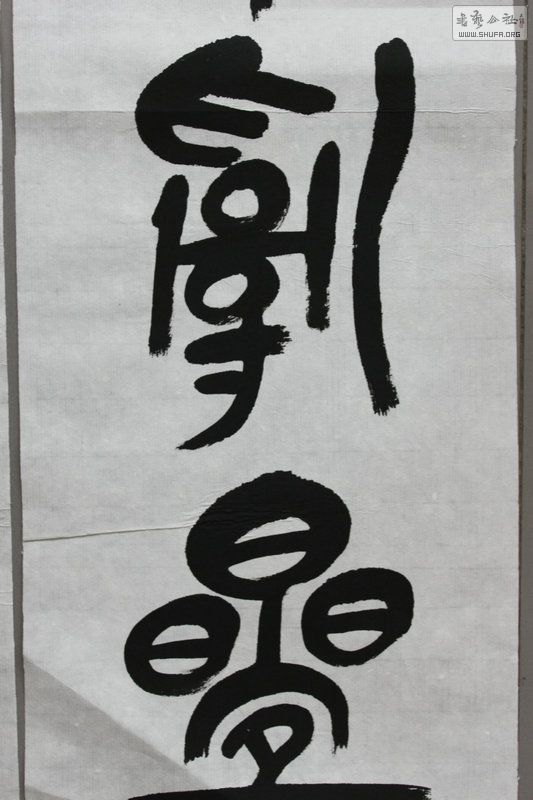 書藝公社
WWW.SHUFA.ORG
亂
疊